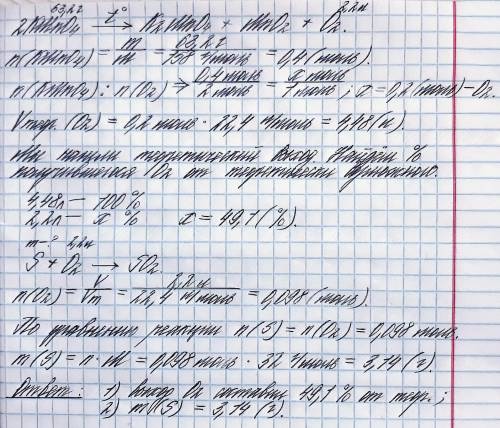 63,2г t° 2,2л
2KMnO4 → K2MnO4 + MnO2 + O2.
n(KMnO4) = m/M = 63,2 г/158 г/моль = 0,4 (моль).
n(KMnO4) : n(O2) ⇒ 0,4 моль/2 моль = x моль/1 моль ; x = 0,2 (моль) – O2.
Vтеор. (O2) = 0,2 моль · 22,4 л/моль = 4,48 (л).
Мы нашли теоретический выход. Найдём %
получившегося O2 от теоретически
4,48л – 100 %
2,2л – x % x = 49,1 (%).
m-? 2,2л
S + O2 → SO2
n(O2) = V/Vm = 2,2 л/22,4 л/моль = 0,098 (моль).
По уравнению реакции n(S) = n(O2) = 0,098 моль.
m(S) = n · M = 0,098 моль · 32 г/моль = 3,14 (г).
Ответ: 1) выход O2 составил 49,1 % от теор.;
2) m(S) = 3,14 (г).